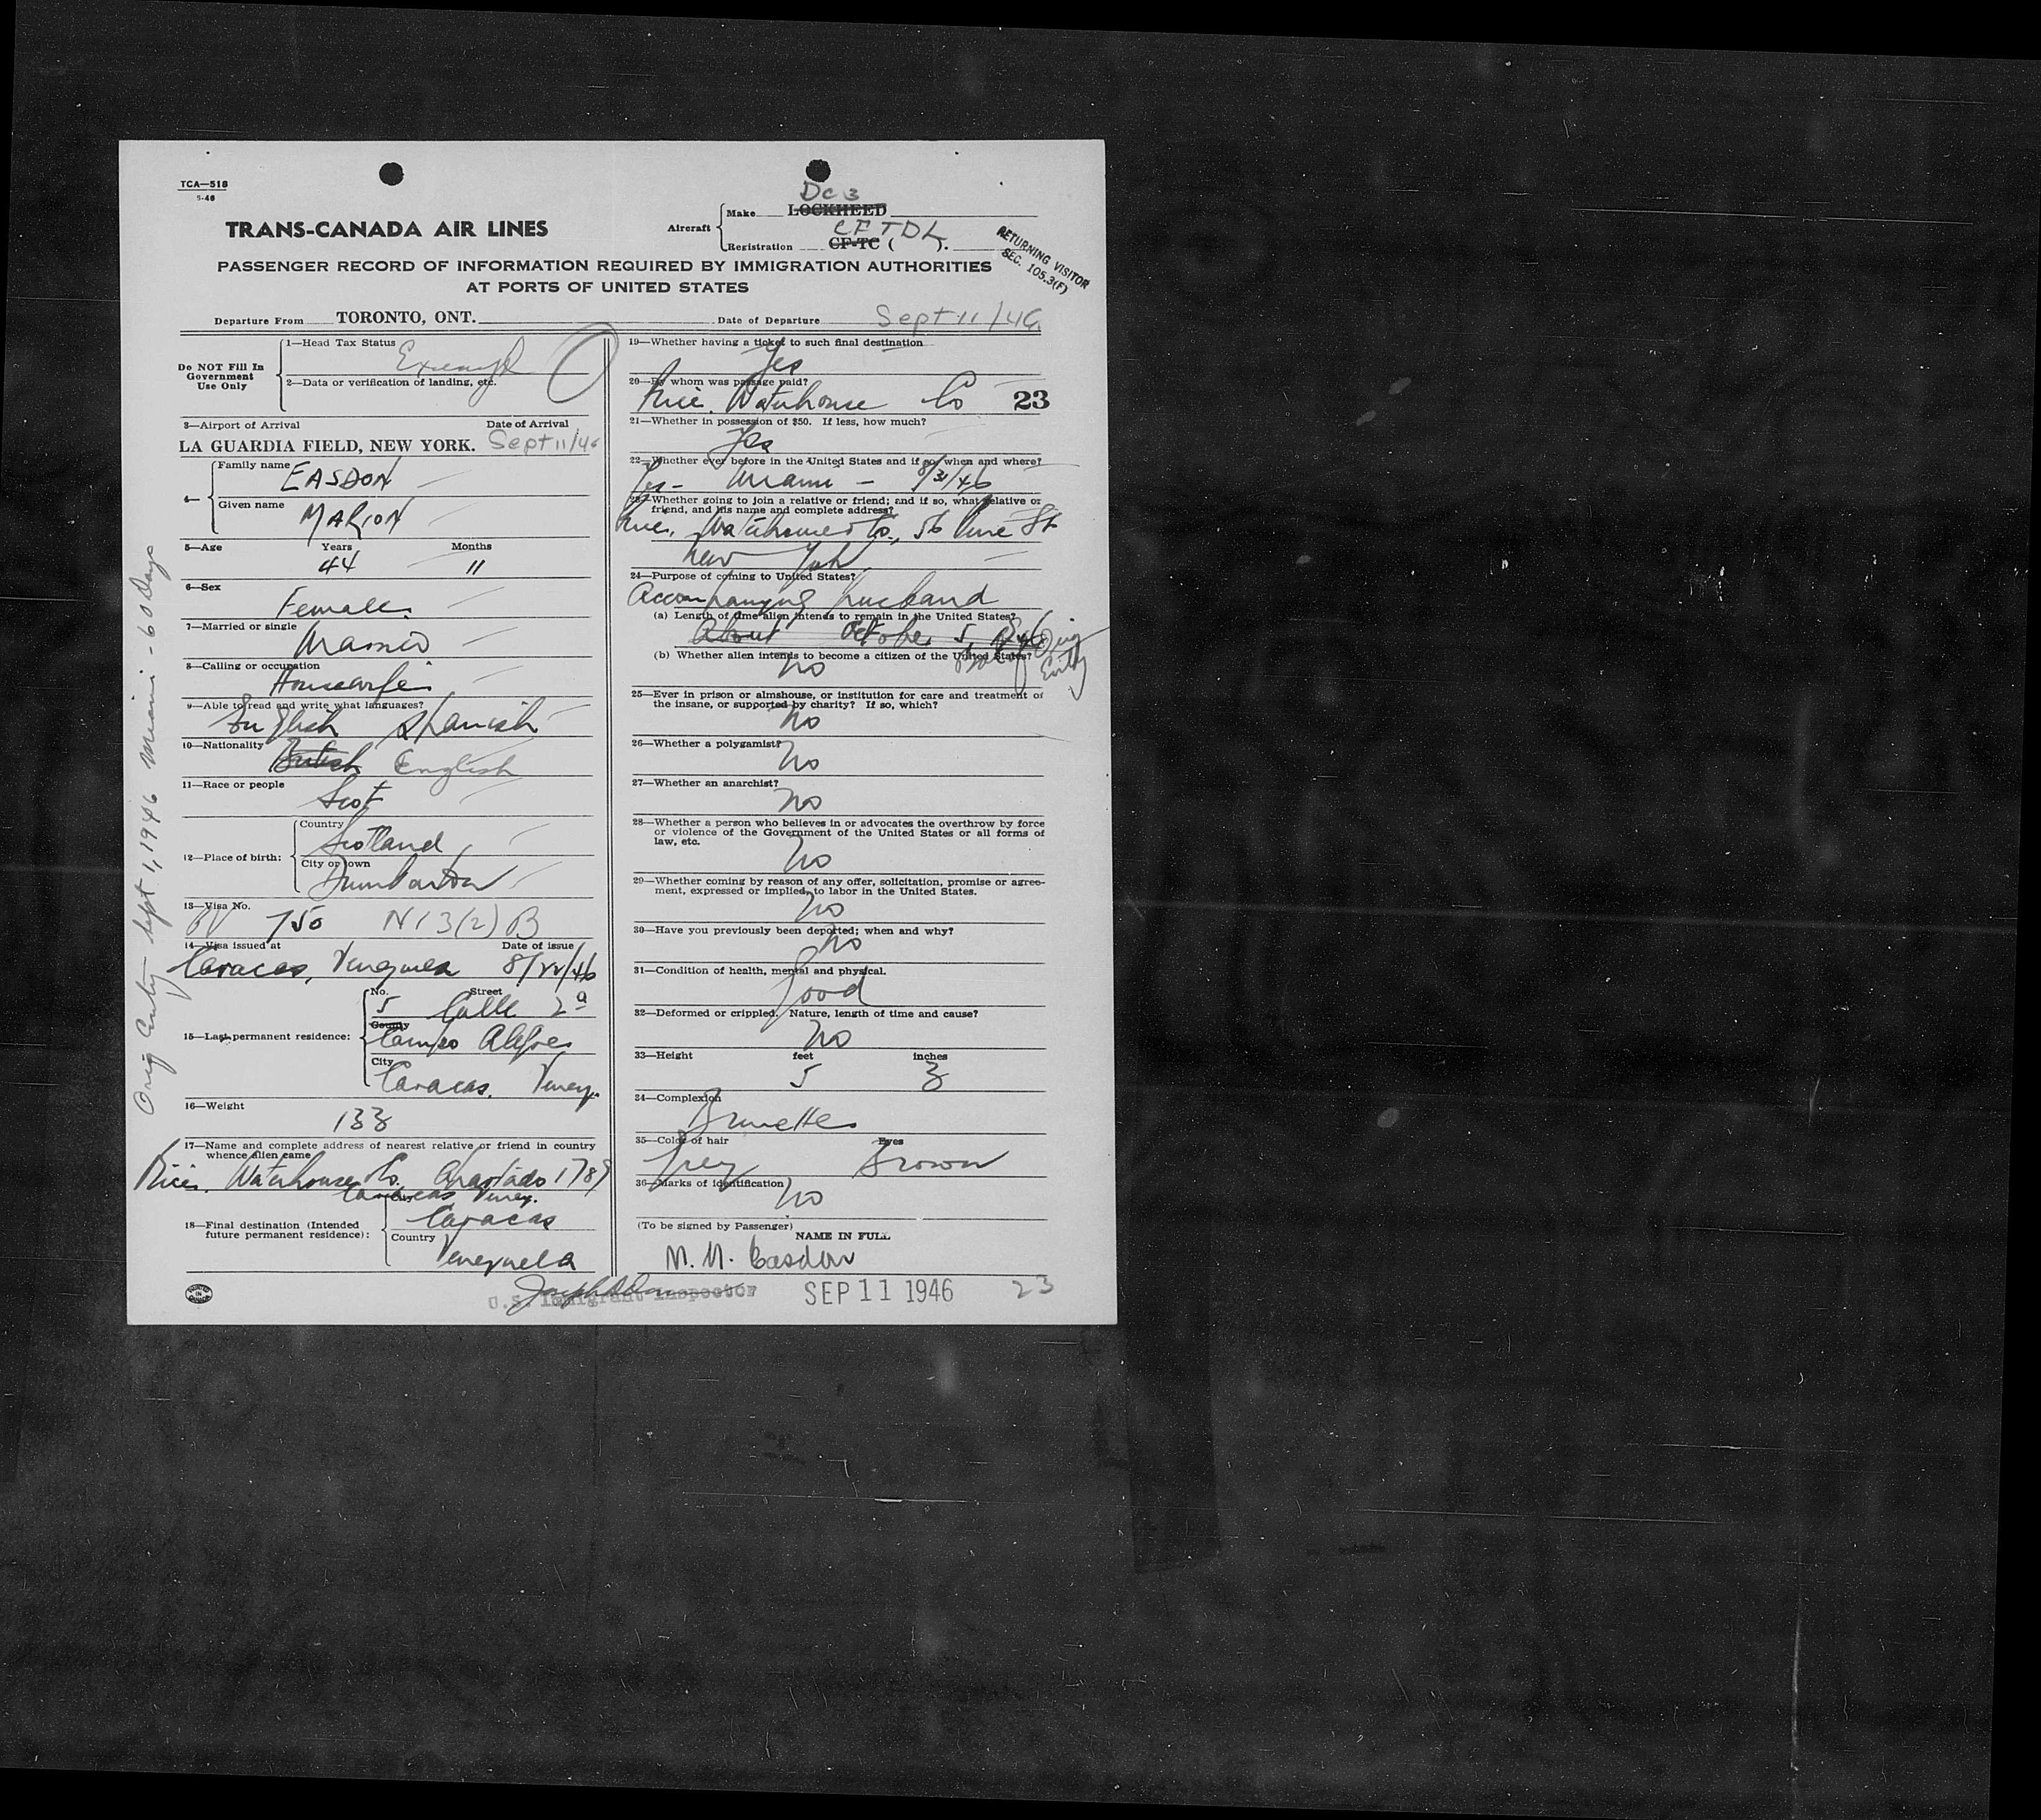 TCA—518
5-46
TRANS-CANADA AIR LINES
Aircraft
Make DC 3 LOCKHEED
Registration CF TDL CF-TC ( ).
RETURNING VISITOR
SEC. 105.3(F)
PASSENGER RECORD OF INFORMATION REQUIRED BY IMMIGRATION AUTHORITIES
AT PORTS OF UNITED STATES
Departure From TORONTO, ONT. Date of Departure Sept 11/46
Do NOT Fill In Government Use Only
1—Head Tax Status Exempt
2—Data or verification of landing, etc.
3—Airport of Arrival Date of Arrival
LA GUARDIA FIELD, NEW YORK. Sept 11/46
4— Family name EASDON
Given name MARION
5—Age Years Months
44 11
6—Sex
Female
7—Married or single
Married
8—Calling or occupation
Housewife
9—Able to read and write what languages?
English Spanish
10—Nationality
British English
11—Race or people
Scot
12—Place of birth:
Country
Scotland
City or town
Dumbarton
13—Visa No.
750 N13(2)B
14—Visa issued at Date of issue
Caracas, Venezuela 8/22/46
15—Last permanent residence:
No. Street
5 Calle 2a
County
Campo Alegre
City
Caracas. Venez.
16—Weight
133
17—Name and complete address of nearest relative or friend in country
whence alien came
Price. Waterhouse Co. Apartado 1789
Caracas Venez.
18—Final destination (Intended
future permanent residence):
City
Caracas
Country
Venezuela
Orig Entry Sept 1, 1946 Miami - 60 Days
19—Whether having a ticket to such final destination
Yes
20—By whom was passage paid?
Price. Waterhouse Co 23
21—Whether in possession of $50. If less, how much?
Yes
22—Whether ever before in the United States and if so, when and where?
Yes - Miami - 8/31/46
23—Whether going to join a relative or friend; and if so, what relative or
friend, and his name and complete address?
Price. Waterhouse Co., 56 Pine St
New York
24—Purpose of coming to United States?
Accompanying husband
(a) Length of time alien intends to remain in the United States?
About October 5,
(b) Whether alien intends to become a citizen of the United States?
No
25—Ever in prison or almshouse, or institution for care and treatment of
the insane, or supported by charity? If so, which?
No
26—Whether a polygamist?
No
27—Whether an anarchist?
No
28—Whether a person who believes in or advocates the overthrow by force
or violence of the Government of the United States or all forms of
law, etc.
No
29—Whether coming by reason of any offer, solicitation, promise or agree-
ment, expressed or implied, to labor in the United States.
No
30—Have you previously been deported; when and why?
No
31—Condition of health, mental and physical.
Good
32—Deformed or crippled. Nature, length of time and cause?
No
33—Height feet inches
5 3
34—Complexion
Brunette
35—Color of hair Eyes
Grey Brown
36—Marks of identification
No
(To be signed by Passenger)
NAME IN FULL
M. M. Easdon
U.S. Immigrant Inspector SEP 11 1946 23